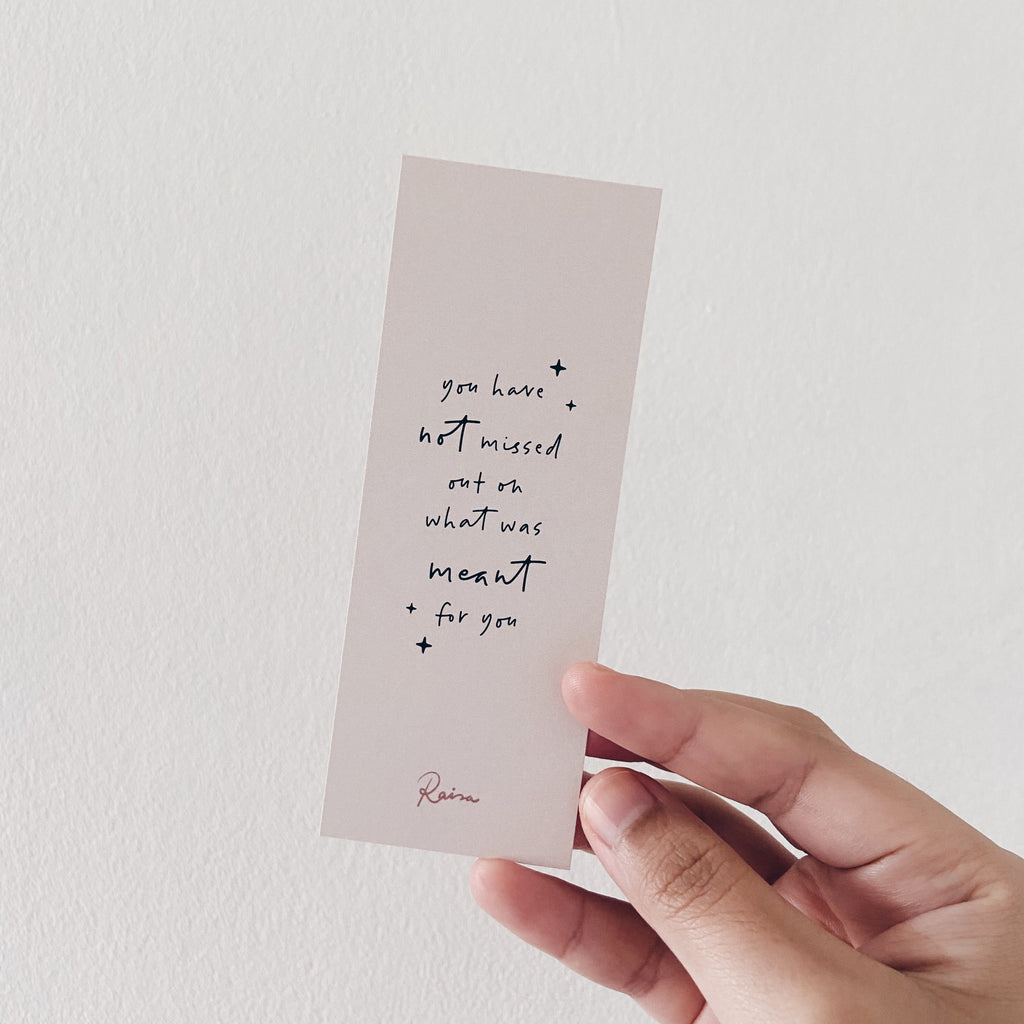 you have
not missed
out on
what was
meant
for you
Raisa